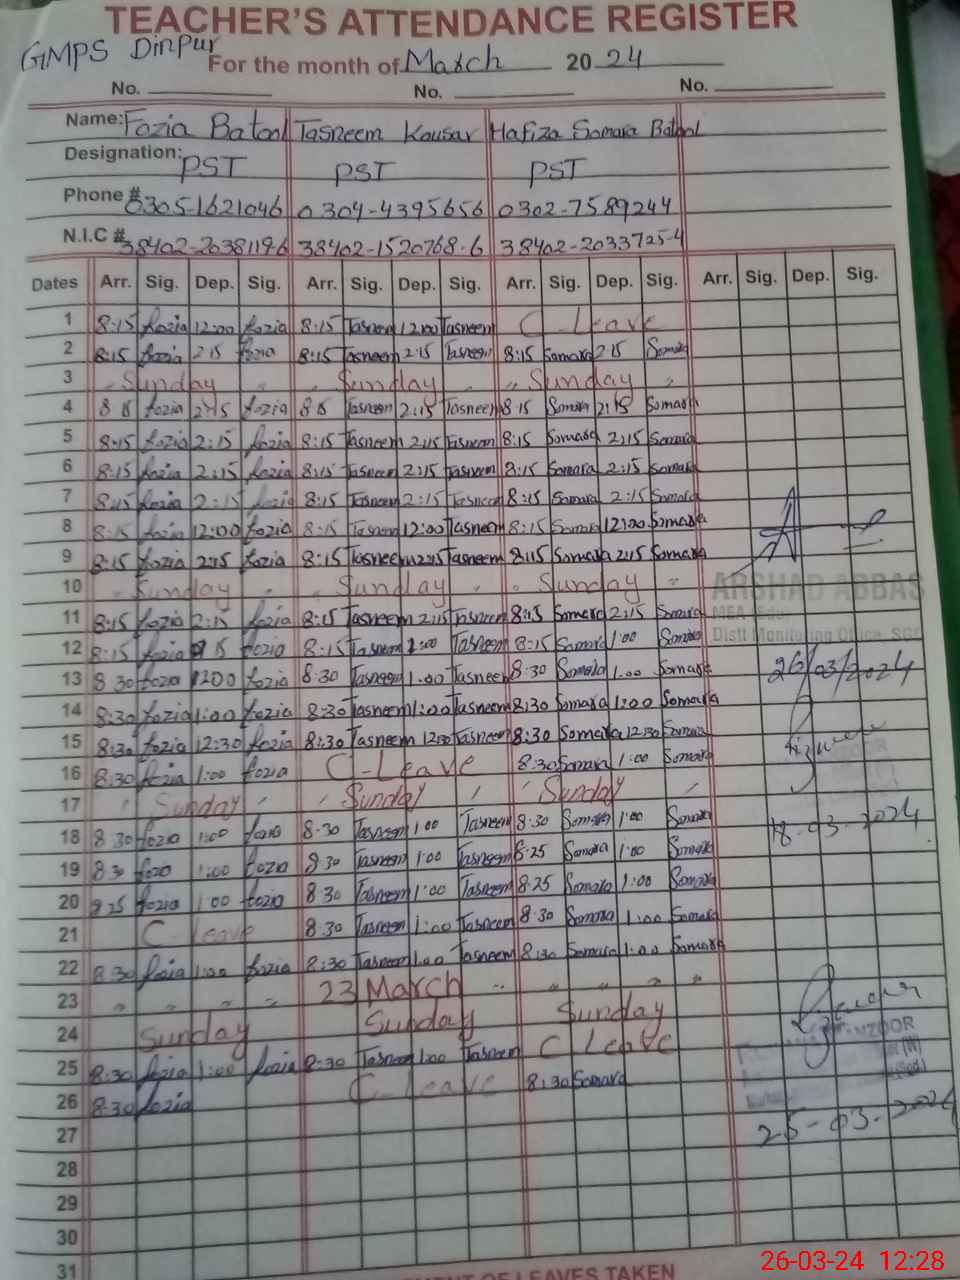 TEACHER'S ATTENDANCE REGISTER
GMPS Dinpur
For the month of March 2024
No. No. No.
Name: Fozia Batool Tasneem Kousar Hafiza Somara Batool
Designation: PST PST PST
Phone # 0305-1621046 0304-4395656 0302-7589244
N.I.C # 38402-2038119-6 38402-1520768-6 38402-2033725-4
Dates Arr. Sig. Dep. Sig. Arr. Sig. Dep. Sig. Arr. Sig. Dep. Sig. Arr. Sig. Dep. Sig.
1 8:15 fozia 12:00 fozia 8:15 Tasneem 12:00 Tasneem C-Leave
2 8:15 fozia 2:15 fozia 8:15 Tasneem 2:15 Tasneem 8:15 Somara 2:15 Somara
3 " Sunday " " Sunday " " Sunday "
4 8:15 fozia 2:15 fozia 8:15 Tasneem 2:15 Tasneem 8:15 Somara 2:15 Somara
5 8:15 fozia 2:15 fozia 8:15 Tasneem 2:15 Tasneem 8:15 Somara 2:15 Somara
6 8:15 fozia 2:15 fozia 8:15 Tasneem 2:15 Tasneem 8:15 Somara 2:15 Somara
7 8:15 fozia 2:15 fozia 8:15 Tasneem 2:15 Tasneem 8:15 Somara 2:15 Somara
8 8:15 fozia 12:00 fozia 8:15 Tasneem 12:00 Tasneem 8:15 Somara 12:00 Somara
9 8:15 fozia 2:15 fozia 8:15 Tasneem 2:15 Tasneem 8:15 Somara 2:15 Somara
10 " Sunday " " Sunday " " Sunday "
ARSHAD ABBAS
MEA (Edu)
11 8:15 fozia 2:15 fozia 8:15 Tasneem 2:15 Tasneem 8:15 Somara 2:15 Somara
Distt Monitoring Office, SGD
12 8:15 fozia 15 fozia 8:15 Tasneem 1:00 Tasneem 8:15 Somara 1:00 Somara
13 8:30 fozia 1200 fozia 8:30 Tasneem 1:00 Tasneem 8:30 Somara 1:00 Somara
26/03/2024
14 8:30 fozia 1:00 fozia 8:30 Tasneem 1:00 Tasneem 8:30 Somara 1:00 Somara
15 8:30 fozia 12:30 fozia 8:30 Tasneem 12:30 Tasneem 8:30 Somara 12:30 Somara
16 8:30 fozia 1:00 fozia C-Leave 8:30 Somara 1:00 Somara
17 " Sunday " " Sunday " " Sunday "
18 8:30 fozia 1:00 fozia 8:30 Tasneem 1:00 Tasneem 8:30 Somara 1:00 Somara
18-03-2024
19 8:30 fozia 1:00 fozia 8:30 Tasneem 1:00 Tasneem 8:25 Somara 1:00 Somara
20 8:25 fozia 1:00 fozia 8:30 Tasneem 1:00 Tasneem 8:25 Somara 1:00 Somara
21 C-Leave 8:30 Tasneem 1:00 Tasneem 8:30 Somara 1:00 Somara
22 8:30 fozia 1:00 fozia 8:30 Tasneem 1:00 Tasneem 8:30 Somara 1:00 Somara
23 " " " " 23 March " " " " "
24 Sunday Sunday Sunday
25 8:30 fozia 1:00 fozia 8:30 Tasneem 1:00 Tasneem C Leave
26 8:30 fozia C-Leave 8:30 Somara
25-03-2024
27
28
29
30
31
OF LEAVES TAKEN
26-03-24 12:28